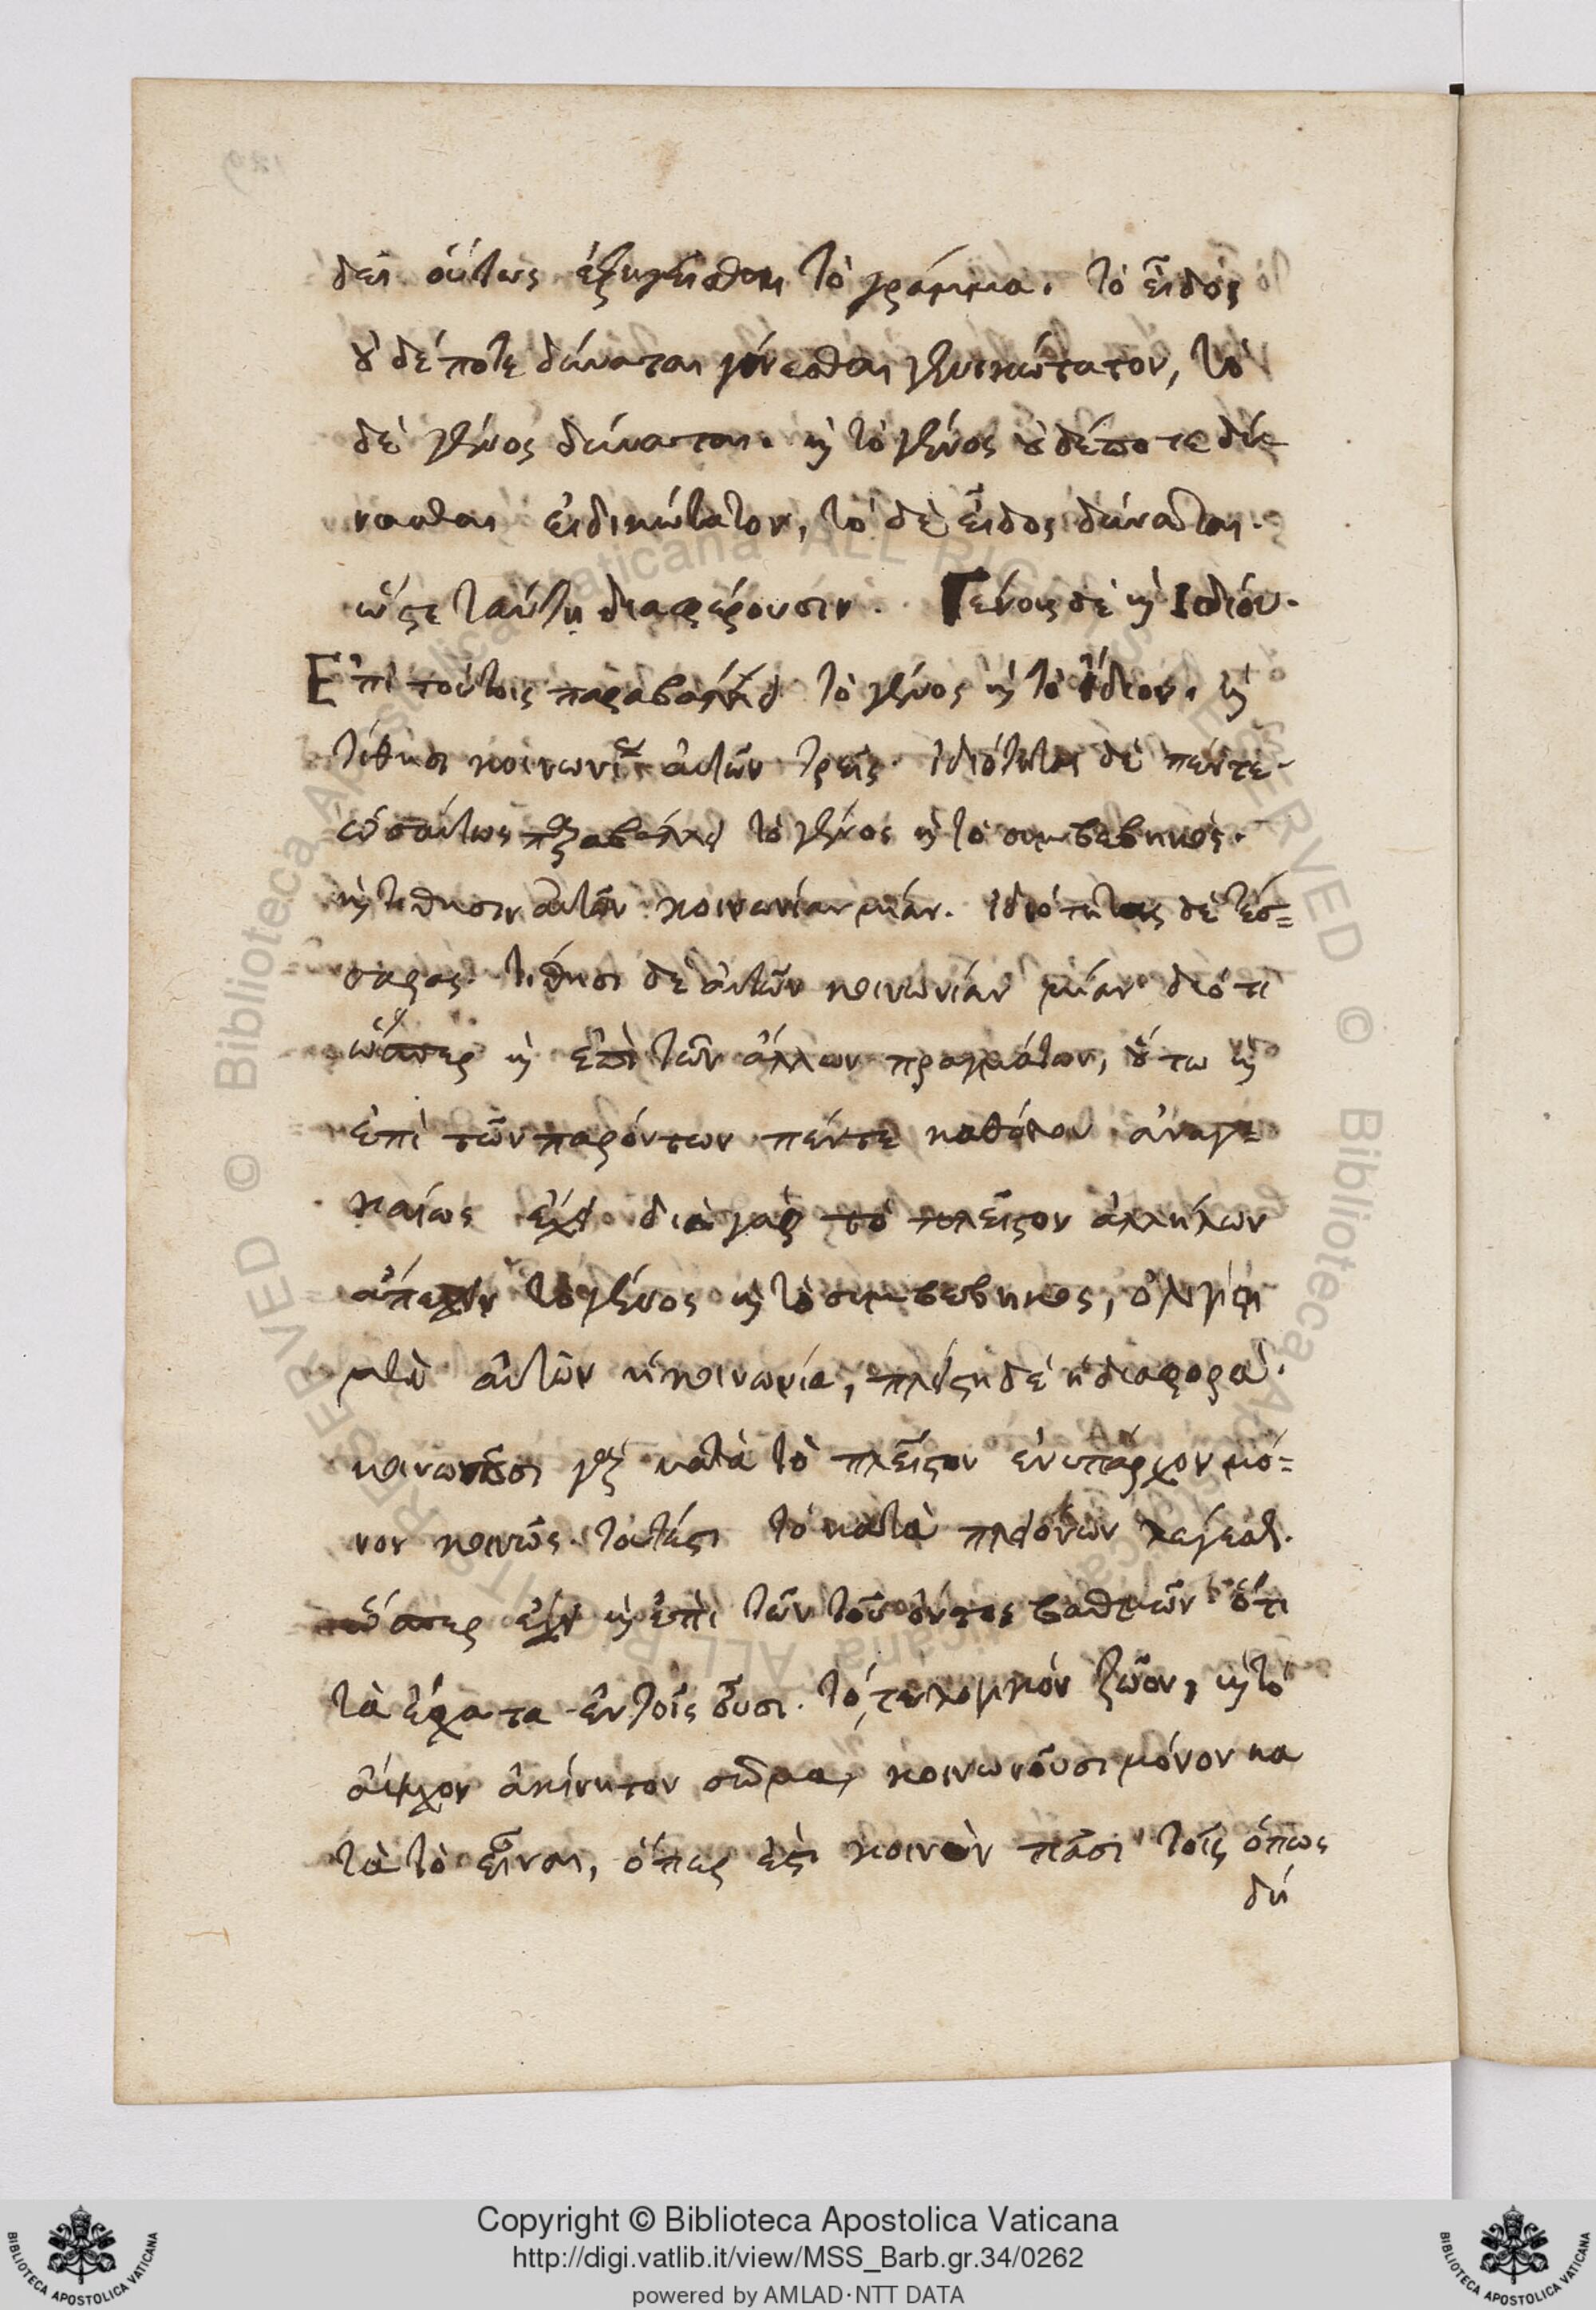 δεῖ οὕτως ἐξηγεῖσθαι τὸ γράμμα. τὸ εἶδος
οὐδέποτε δύναται γενέσθαι γενικώτατον, τὸ
δὲ γένος δύναται. καὶ τὸ γένος οὐδέποτε δύ-
νασθαι εἰδικώτατον, τὸ δὲ εἶδος δύναται.
ὥστε ταύτῃ διαφέρουσιν. Γένους δὲ καὶ Ἰδίου.
Ἐπὶ τούτοις παραβάλλει τὸ γένος καὶ τὸ ἴδιον. καὶ
τίθησι κοινωνίας αὐτῶν τρεῖς. ἰδιότητας δὲ πέντε.
ὡσαύτως παραβάλλει τὸ γένος καὶ τὸ συμβεβηκός.
καὶ τίθησιν αὐτῶν κοινωνίαν μίαν. ἰδιότητας δὲ τέσ=
σαρας. τίθησι δὲ αὐτῶν κοινωνίαν μίαν διότι
ὥσπερ καὶ ἐπὶ τῶν ἄλλων πραγμάτων, οὕτω καὶ
ἐπὶ τῶν παρόντων πέντε καθόλου ἀναγ=
καίως ἔχει διὰ γὰρ τὸ πλεῖστον ἀλλήλων
ἀπέχειν τὸ γένος καὶ τὸ συμβεβηκός, ὀλιγίστη
μὲν αὐτῶν ἡ κοινωνία, πλείστη δὲ ἡ διαφορά.
κοινωνοῦσι γὰρ κατὰ τὸ πλεῖστον ἐνυπάρχον μό=
νον κοινῶς. τουτέστι τὸ κατὰ πλειόνων λέγεσθαι.
ὥσπερ ἔχειν καὶ ἐπὶ τῶν τοῦ ὄντος βαθμῶν ὅτι
τὰ ἔσχατα ἐν τοῖς οὖσι. τό, τε λογικὸν ζῶον, καὶ τὸ
ἄψυχον ἀκίνητον σῶμα, κοινωνοῦσι μόνον κα
τὰ τὸ εἶναι, ὅπερ ἐστὶ κοινὸν πᾶσι τοῖς ὅπως
δή
Copyright © Biblioteca Apostolica Vaticana
http://digi.vatlib.it/view/MSS_Barb.gr.34/0262
powered by AMLAD·NTT DATA